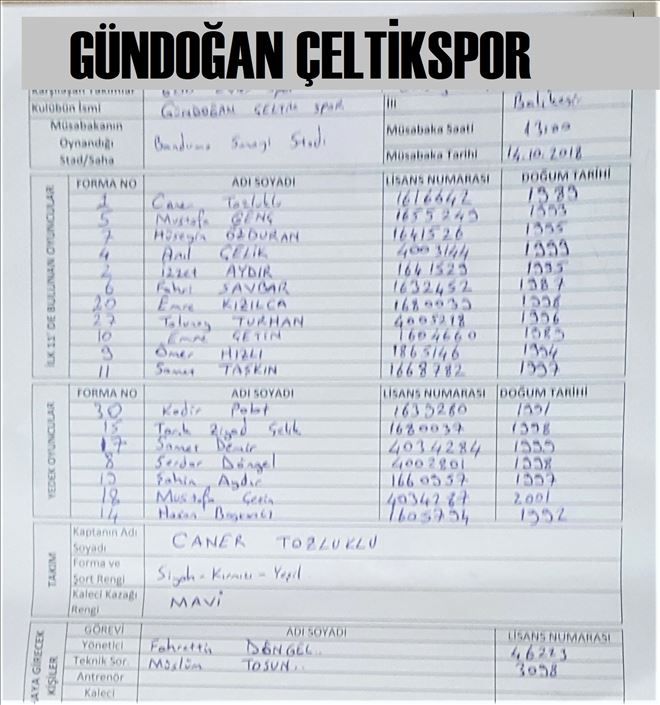 GÜNDOĞAN ÇELTİKSPOR
Kulübün İsmi GÜNDOĞAN ÇELTİK SPOR İli Balıkesir
Müsabakanın Oynandığı Stad/Saha Bandırma Sanayi Stadı Müsabaka Saati 13:00
Müsabaka Tarihi 14.10.2018
İLK 11' DE BULUNAN OYUNCULAR
FORMA NO ADI SOYADI LİSANS NUMARASI DOĞUM TARİHİ
1 Caner Tozluklu 1616642 1989
5 Mustafa GENÇ 1655249 1993
7 Hüseyin ÖZDURAN 1641526 1995
4 Anıl ÇELİK 4003144 1999
2 İzzet AYDIR 1641529 1995
6 Fahri SAVBAR 1632452 1987
20 Emre KIZILCA 1680039 1998
27 Tolunay TURHAN 4005218 1996
10 Emre ÇETİN 1604660 1989
9 Ömer HIZLI 1865146 1994
11 Samet TAŞKIN 1668782 1997
YEDEK OYUNCULAR
FORMA NO ADI SOYADI LİSANS NUMARASI DOĞUM TARİHİ
30 Kadir Polat 1639280 1991
15 Tarık Ziyad Çelik 1680037 1998
17 Samet Demir 4034284 1999
8 Serdar Döngel 4002801 1998
19 Şahin Aydır 1660957 1997
18 Mustafa Çetin 4034287 2001
14 Hasan 1605794 1992
TAKIM
Kaptanın Adı Soyadı CANER TOZLUKLU
Forma ve Şort Rengi Siyah - Kırmızı - Yeşil
Kaleci Kazağı Rengi MAVİ
SAHAYA GİRECEK KİŞİLER
GÖREVİ ADI SOYADI LİSANS NUMARASI
Yönetici Fahrettin DÖNGEL.. 46223
Teknik Sor. Müslüm TOSUN.. 3098
Antrenör
Kaleci